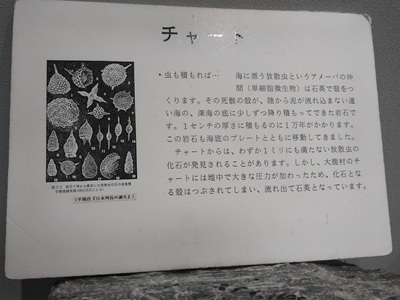 チャート
・虫も積もれば… 海に漂う放散虫というアメーバの仲
間（単細胞微生物）は石英で殻をつ
くります。その死骸の殻が、陸から泥が流れ込まない遠
い海の、深海の底に少しずつ降り積もってできた岩石で
す。1センチの厚さに積もるのに1万年がかかります。
この岩石も海底のプレートとともに移動してきました。
チャートからは、わずか1ミリにも満たない放散虫の
化石が発見されることがあります。しかし、大鹿村のチ
ャートには地中で大きな圧力が加わったため、化石とな
る殻はつぶされてしまい、流れ出て石英となっています。
（平朝彦『日本列島の誕生』）